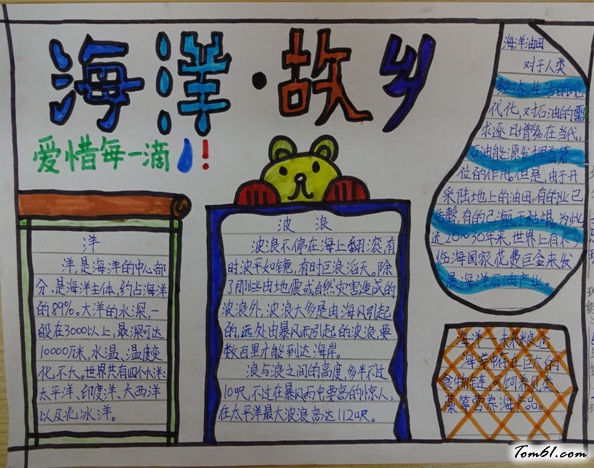 海洋·故乡
爱惜每一滴!
洋
洋是海洋的中心部
分,是海洋主体,约占海洋
的89%。大洋的水深,一
般在3000以上,最深可达
10000万米,水温、温度变
化不大。世界共有四个水洋:
太平洋、印度洋、大西洋
以及北冰洋。
波浪
波浪不停在海上翻滚,有
时波平如镜,有时巨浪滔天。除
了那些由地震或自然灾害造成的
波浪外,波浪大多是由海风引起
的,远处由暴风雨引起的波浪,要
数百里才能到达海岸。
浪与浪之间的高度多半不过
10呎,不过在暴风雨中要高的惊人,
在太平洋最大波浪高达112呎。
海洋油田
对于人类
代化,对石油的需
求逐日增多在当代,
位的作用。但是,由于开
采陆地上的油田,有的业已
近20-30年来,世界上有不少
临海国家花费巨金来发
展海洋石油产业。
Tom61.com